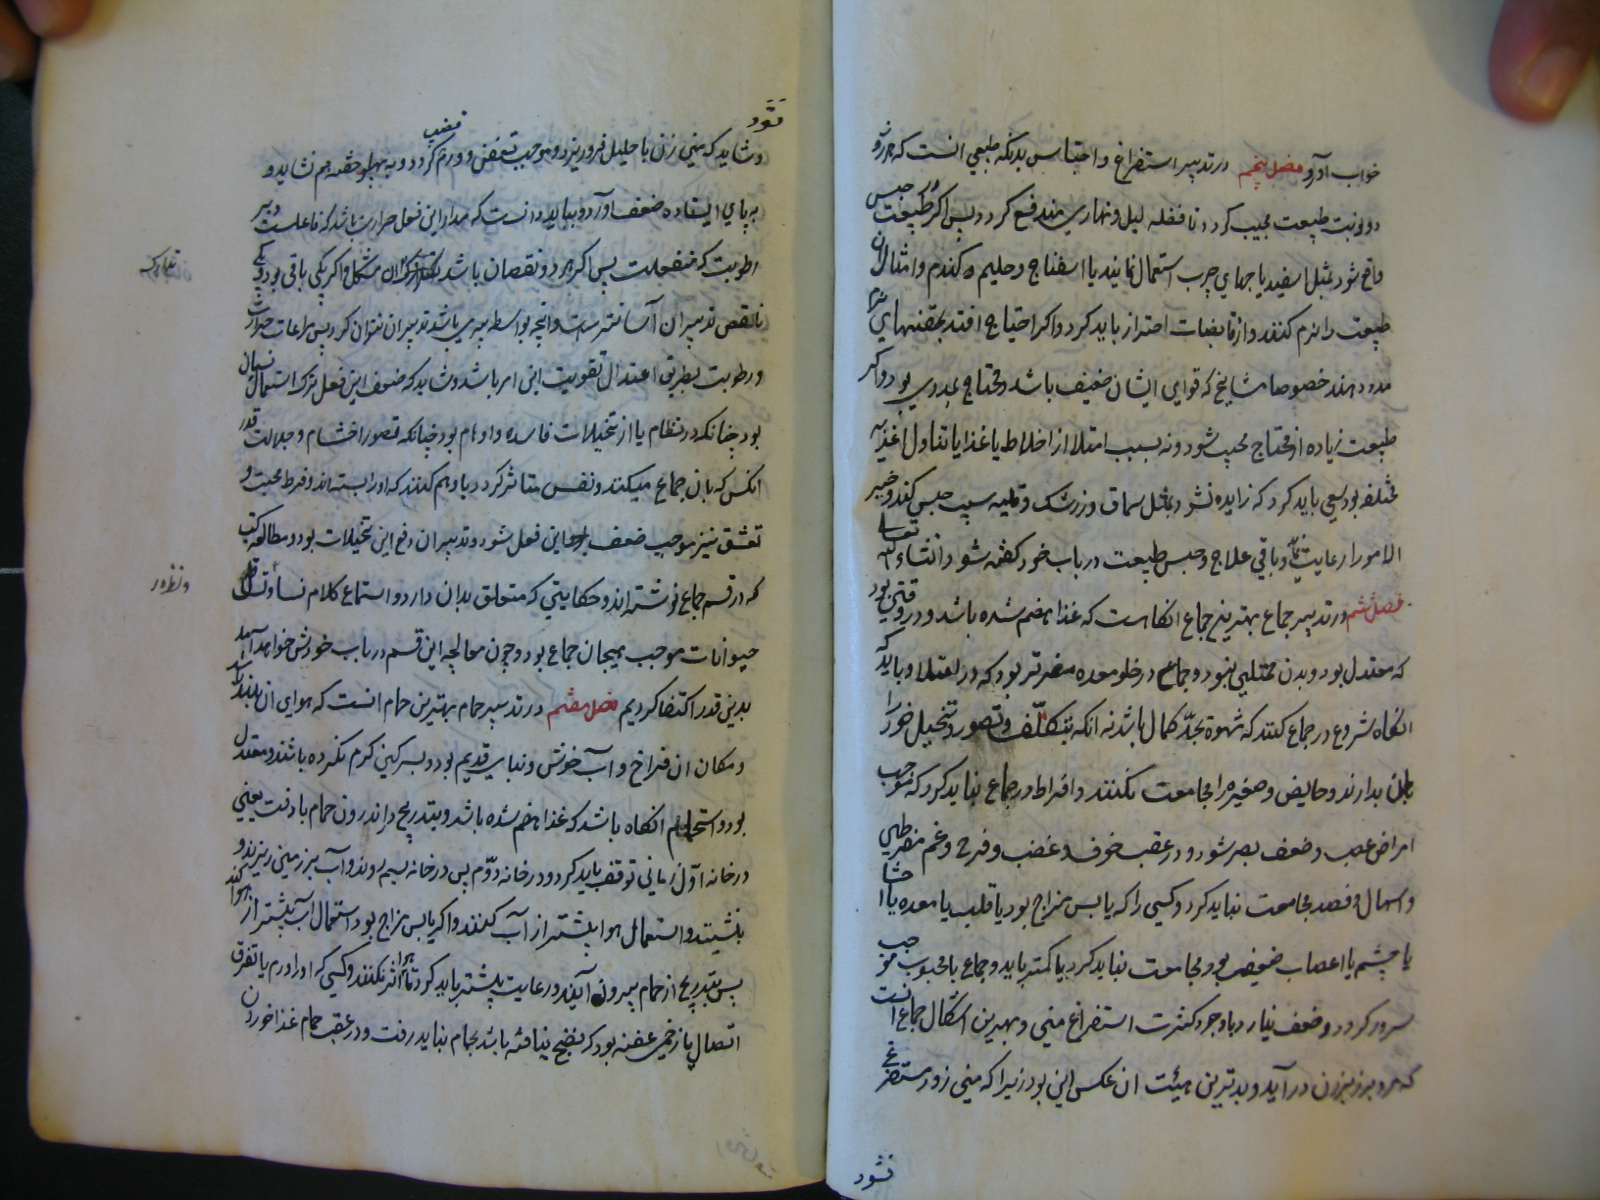 خواب آورد فصل پنجم در تدبیر استفراغ و احتباس بدنکه طبیعی انست که هر روز
دو نوبت طبیعت مجیب کردد تا فضله لیل و نهاری مندفع کردد پس اکر طبیعت حبس
واقع شود بمثل اسفیدباجهای چرب استعمال نمایند یا اسفناج و حلیم کندم و امثال ان
طبیعت را نرم کنند و از قابضات احتراز باید کرد و اکر احتیاج افتد بحقنهای نرم
مدد دهند خصوصا مشایخ که قوای ایشان ضعیف باشد و محتاج بمددی بود و اکر
طبیعت زیاده از محتاج مجیب شود و نه بسبب امتلا از اخلاط یا غذا یا تناول اغذیه
مختلفه بود سعی باید کرد که زایده نشود بمثل سماق و زرشک و قلیه سیب حبس کند و خیر
الامور را رعایت نماید و باقی علاج و حبس طبیعت در باب خود کفته شود انشاء الله تعالی
فصل ششم در تدبیر جماع بهترین جماع انکاه است که غذا هضم شده باشد و در وقتی بود
که معتدل بود و بدن ممتلی نبود و جماع در خلو معده مضرتر بود که در امتلا و باید که
انکاه شروع در جماع کنند که شهوة بحد کمال باشد نه انکه بتکلف و تصور و تخیل خود را
بران بدارند و حایض و صغیره را مجامعت نکنند و افراط در جماع نباید کرد که موجب
امراض عصب و ضعف بصر شود و در عقب خوف و غضب و فرح و غم مفرط و قی
و اسهال و فصد مجامعت نباید کرد و کسی را که یابس مزاج بود یا قلب یا معده یا احشا
یا چشم یا اعصاب ضعیف بود مجامعت نباید کرد یا کمتر باید و جماع با محبوب موجب
سرور کردد و ضعف نیارد با وجود کثرت استفراغ منی و بهترین اشکال جماع انست
که مرد بر زبر زن در آید و بدترین هیئت ان عکس این بود زیرا که منی زود مستفرغ
نشود
نشود
و شاید که منی زن با حلیل فرو ریزد و موجب تعفن و ورم قضیب کردد و به پهلو خفته هم نشاید و
به پای ایستاده ضعف آورد و بباید دانست که مدار این فعل حرارت باشد که فاعلست و بر
رطوبت که منفعلست پس اکر هر دو نقصان یابد مشکل و اکر یکی باقی بود و یکی
ناقص تدبیر ان آسانتر است و انچه بواسطه پیری باشد تدبیر ان نتوان کرد پس مراعات حرارت
و رطوبت بطریق اعتدال تقویت این امر باشد و شاید که ضعف این فعل بترک استعمال نسیان
بود چنانکه در نظام یا از تخیلات فاسده و اوهام بود چنانکه تصور احتشام و جلالت قدر
انکس که با ن جماع میکنند و نفس متاثر کردد یا وهم کنند که او را بسته اند و فرط محبت و
تعشق نیز موجب ضعف این فعل شود و تدبیر ان دفع این تخیلات بود و مطالعه کتب
که در قسم جماع نوشته اند و حکایتی که متعلق بدان دارد و استماع کلام نسا و
ونظر در
حیوانات موجب هیجان جماع بود و چون معالجه این قسم در باب خودش خواهد آمد
بدین قدر اکتفا کردیم فصل هفتم در تدبیر حمام بهترین حمام انست که هوای ان بلند باشد
و مکان ان فراخ و آب خوش و بنای قدیم بود و بسرکین کرم نکرده باشند و معتدل
بود و استحمام انکاه باشد که غذا هضم شده باشد و بتدریج در اندرون حمام باید رفت یعنی
در خانه اول زمانی توقف باید کرد و در خانه دوم پس در خانه سیم روند و آب بر زمین ریزند و
بنشینند و استعمال هوا بیشتر از آب کنند و اکر یابس مزاج بود استعمال آب بیشتر از هوا کند
پس بتدریج از حمام بیرون آیند و رعایت بیشتر باید کرد تا هوا اثر نکند و کسی که او را ورم یا تفرق
اتصال یا زخمی عفنه بود که نضج نیافته باشد بحمام نباید رفت و در عقب حمام غذا خوردن